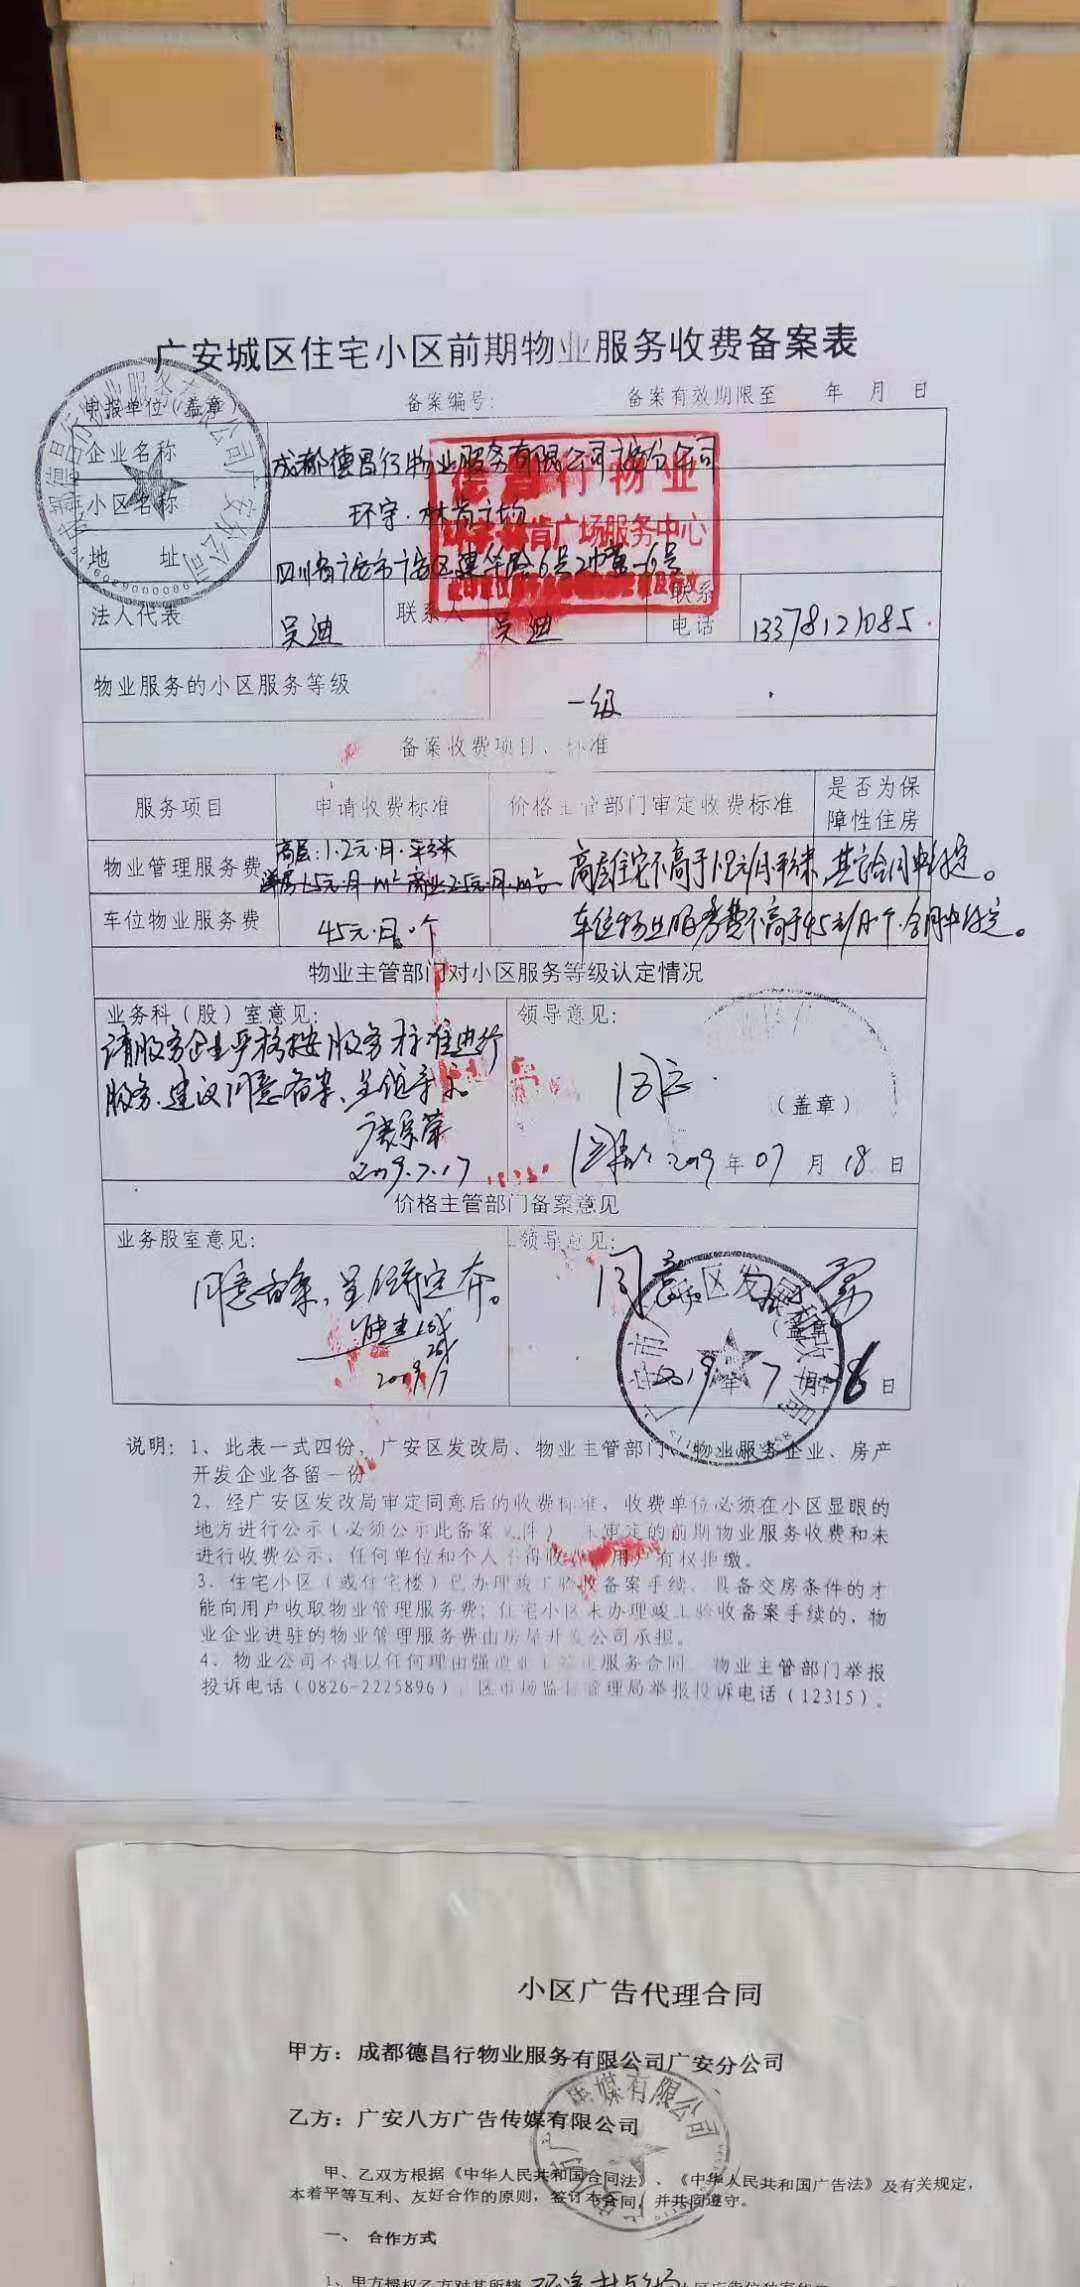 广安城区住宅小区前期物业服务收费备案表
申报单位(盖章) 备案编号: 备案有效期限至 年 月 日
企业名称 成都德昌行物业服务有限公司广安分公司
小区名称 环宇·林肯广场
地 址 四川省广安市广安区建华路6号2幢
德昌行物业
林肯广场服务中心
法人代表 吴迪 联系人 吴迪 联系电话 13378121085
物业服务的小区服务等级 一级
备案收费项目、标准
服务项目 申请收费标准 价格主管部门审定收费标准 是否为保障性住房
物业管理服务费 高层:1.2元·月·平方米 高层住宅不高于1.2元/月·平方米,其它合同中约定。
洋房1.5元·月·m² 商业2.5元·月·m²
车位物业服务费 45元·月·个 车位物业服务费不高于45元/月·个,合同中约定。
物业主管部门对小区服务等级认定情况
业务科(股)室意见: 领导意见:
请服务企业严格按服务标准进行
服务,建议同意备案,呈领导示。
2019.7.17
同意.
(盖章)
2019年07月18日
价格主管部门备案意见
业务股室意见: 领导意见:
同意备案,呈领导定夺。
同意
(盖章)
2019年7月 日
说明: 1、此表一式四份,广安区发改局、物业主管部门、物业服务企业、房产
开发企业各留一份
2、经广安区发改局审定同意后的收费标准,收费单位必须在小区显眼的
地方进行公示(必须公示此备案文件)未审定的前期物业服务收费和未
进行收费公示,任何单位和个人不得收 用户有权拒缴。
3、住宅小区(或住宅楼)已办理竣工验收备案手续、具备交房条件的才
能向用户收取物业管理服务费;住宅小区未办理竣工验收备案手续的,物
业企业进驻的物业管理服务费由房屋开发公司承担。
4、物业公司不得以任何理由强 服务合同。物业主管部门举报
投诉电话(0826-2225896),区市场监督管理局举报投诉电话(12315)。
小区广告代理合同
甲方:成都德昌行物业服务有限公司广安分公司
乙方:广安八方广告传媒有限公司
甲、乙双方根据《中华人民共和国合同法》、《中华人民共和国广告法》及有关规定,
本着平等互利、友好合作的原则,签订本合同,并共同遵守。
一、 合作方式
1、甲方授权乙方对其所辖